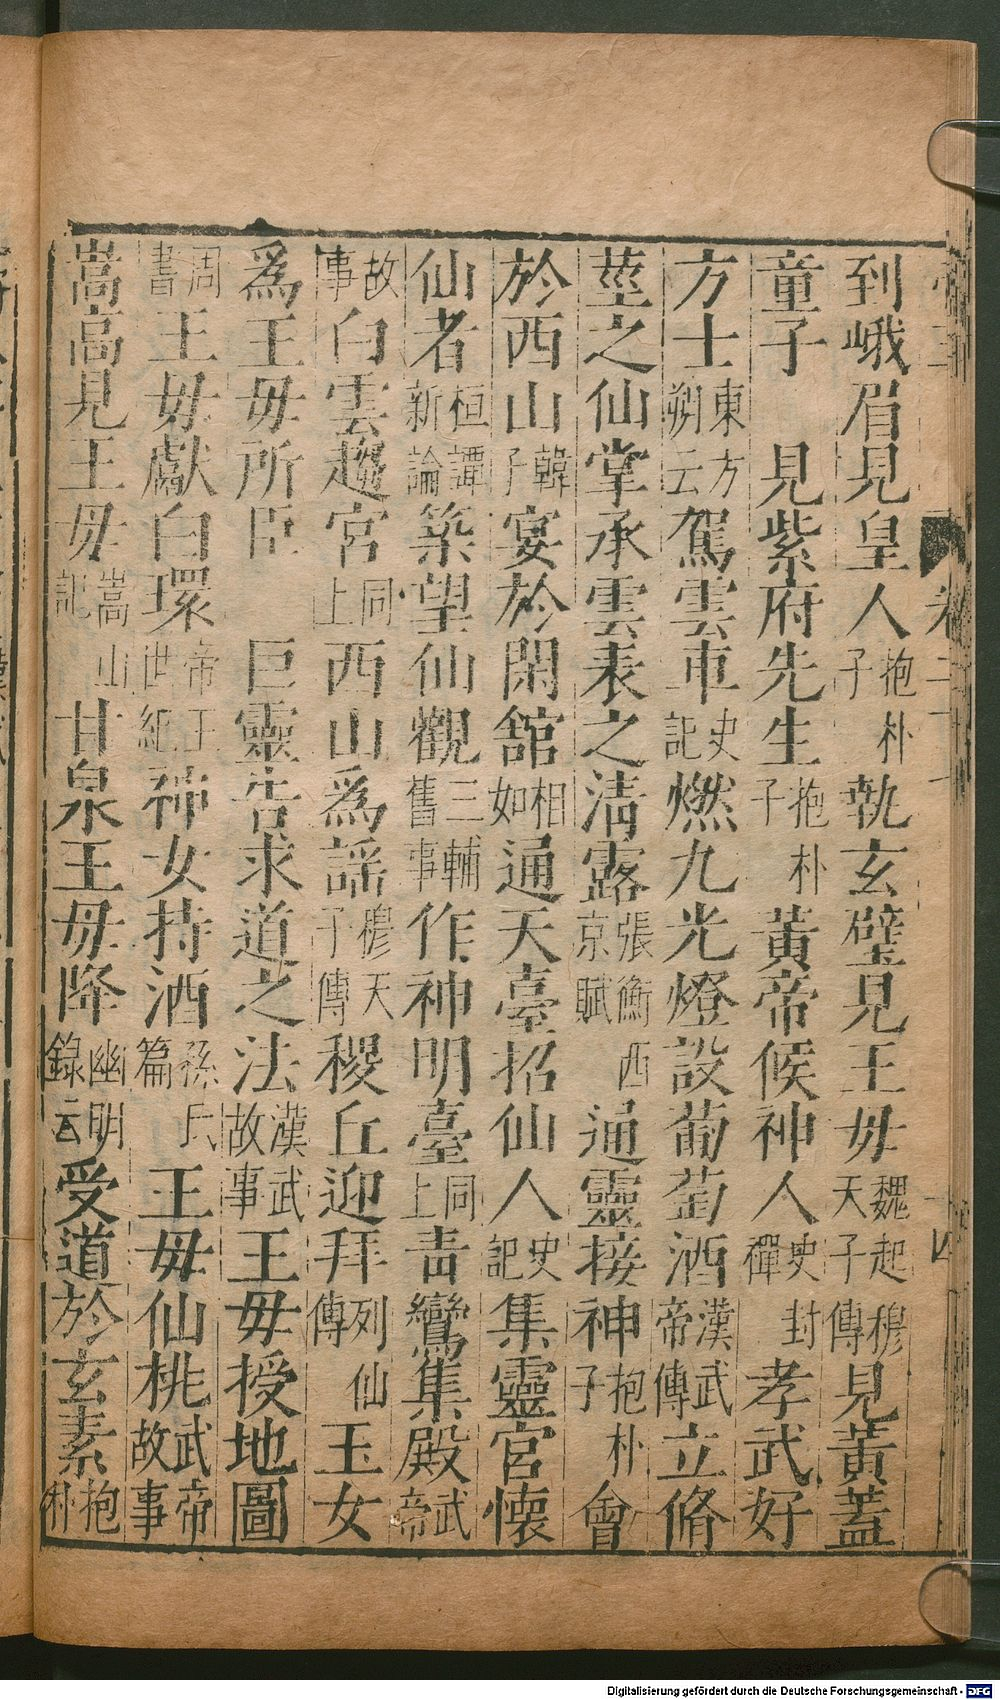 到峨眉見皇人抱朴子執玄璧見王母魏起天子穆傳見黃蓋
童子 見紫府先生抱朴子 黃帝候神人史封禪孝武好
方士東方朔云駕雲車史記燃九光燈設葡萄酒漢武帝傳立脩
莖之仙掌承雲表之清露張衡西京賦 通靈接神抱朴子會
於西山韓子宴於閑舘相如通天臺招仙人史記集靈宮懷
仙者桓譚新論築望仙觀三輔舊事作神明臺同上青鸞集殿武帝
故事白雲趨宮同上西山爲謡穆天子傳稷丘迎拜列仙傳玉女
爲王母所臣 巨靈告求道之法漢武故事王母授地圖
周書王母獻白環帝王世紀神女持酒孫氏篇王母仙桃武帝故事
嵩高見王母嵩山記甘泉王母降幽明錄云受道於玄素抱朴
Digitalisierung gefördert durch die Deutsche Forschungsgemeinschaft - DFG